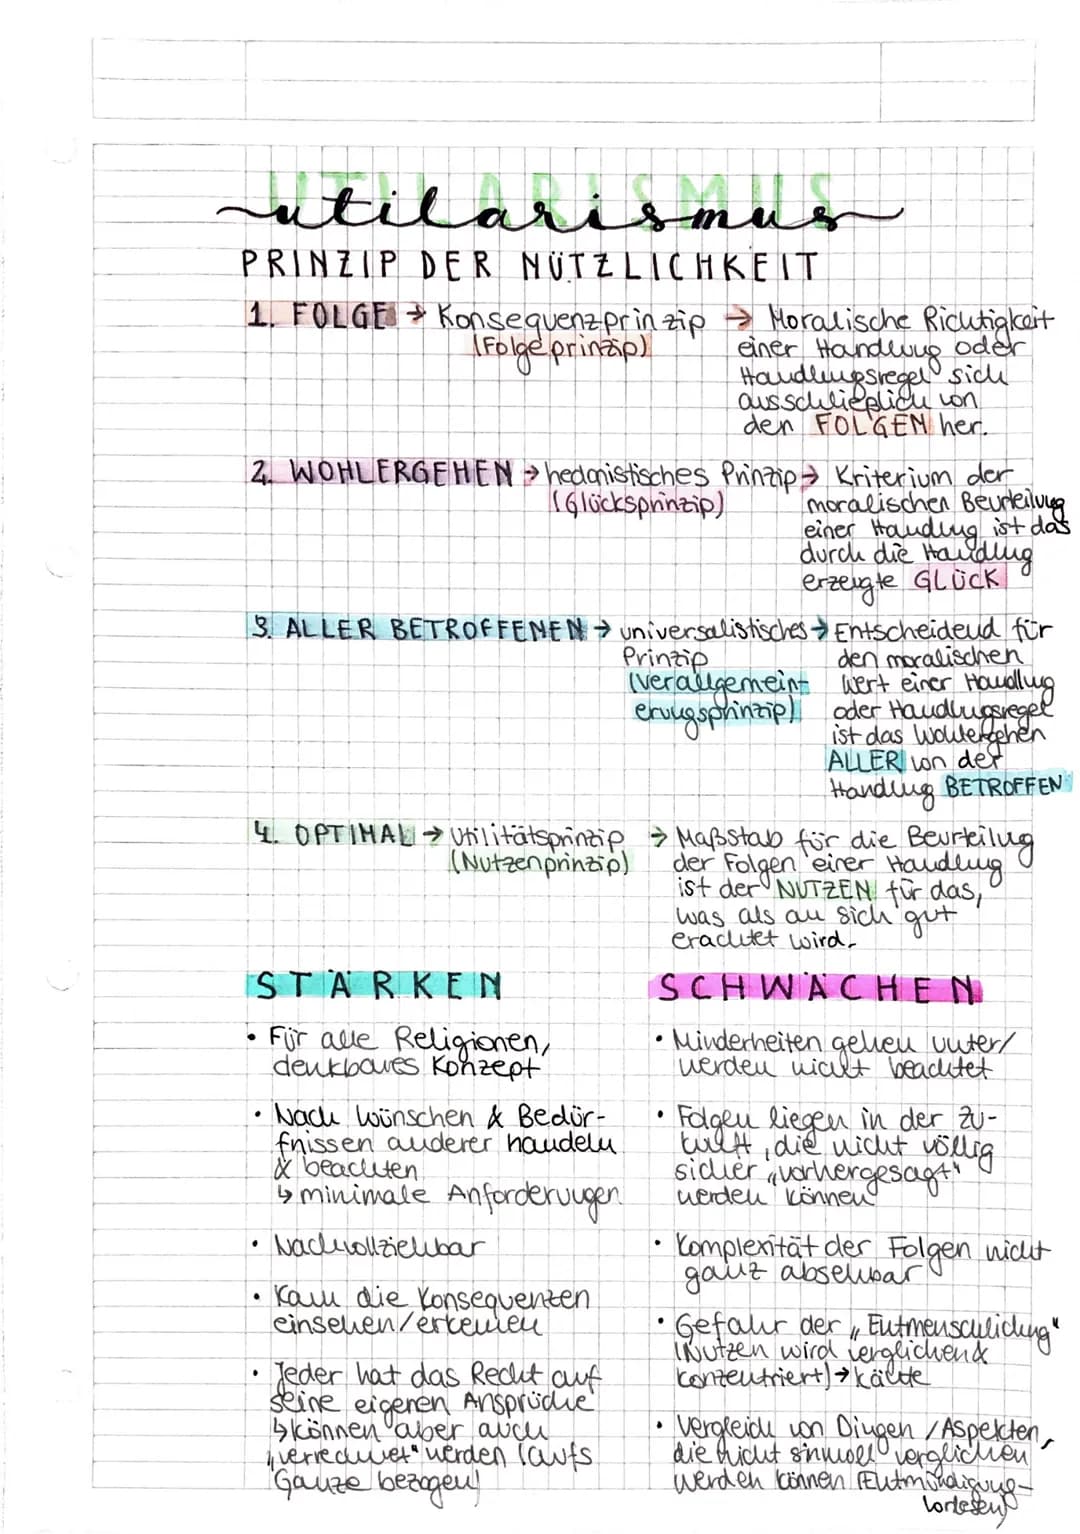 UTILARISMUS
utilarismus
PRINZIP DER NÜTZLICHKEIT
1. FOLGE → Konsequenzprinzip → Moralische Richtigkeit
(Folgeprinzip)
einer Handlung oder
Handlungsregel sich
ausschließlich von
den FOLGEN her.
2. WOHLERGEHEN → hedonistisches Prinzip → Kriterium der
(Glücksprinzip)
moralischen Beurteilung
einer Handlung ist das
durch die Handlung
erzeugte GLÜCK
3. ALLER BETROFFENEN → universalistisches → Entscheidend für
Prinzip
(verallgemein-
erungsprinzip)
den moralischen
Wert einer Handlung
oder Handlungsregel
ist das Wohlergehen
ALLER von der
Handlung BETROFFEN
4. OPTIMAL → Utilitätsprinzip → Maßstab für die Beurteilung
(Nutzenprinzip)
der Folgen einer Handlung
ist der NUTZEN für das,
was als an sich gut
erachtet wird.
STÄRKEN
• Für alle Religionen,
denkbares Konzept
• Nach Wünschen & Bedür-
fnissen anderer handeln
& beachten
↳ minimale Anforderungen
• Nachvollziehbar
• Kann die Konsequenzen
einsehen/erkennen
• Jeder hat das Recht auf
seine eigenen Ansprüche
↳ können aber auch
„verrechnet" werden (aufs
Ganze bezogen)
SCHWÄCHEN
• Minderheiten gehen unter/
werden nicht beachtet
• Folgen liegen in der Zu-
kunft, die nicht völlig
sicher „vorhergesagt"
werden können
• Komplexität der Folgen nicht
ganz absehbar
• Gefahr der „Entmenschlichung"
(Nutzen wird verglichen &
konzentriert) → Kälte
• Vergleich von Dingen /Aspekten,
die nicht sinnvoll verglichen
werden können (Entmündigung-